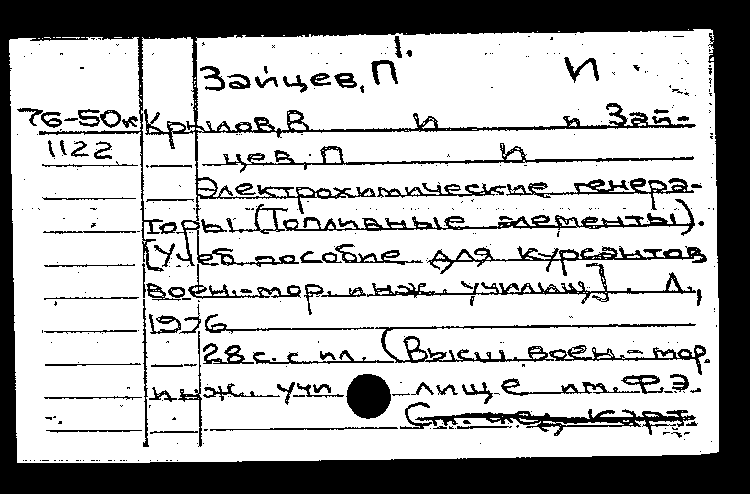 1.
Зайцев, П И
76-50к Крылов, В И и Зай-
1122 цев, П И
Электрохимические генера-
торы (Топливные элементы).
[Учеб пособие для курсантов
воен.-мор. инж. училищ]. Л.,
1976
28 с. с ил. (Высш. воен.-мор.
инж. учи лище им. Ф.Э.
См. след. карт